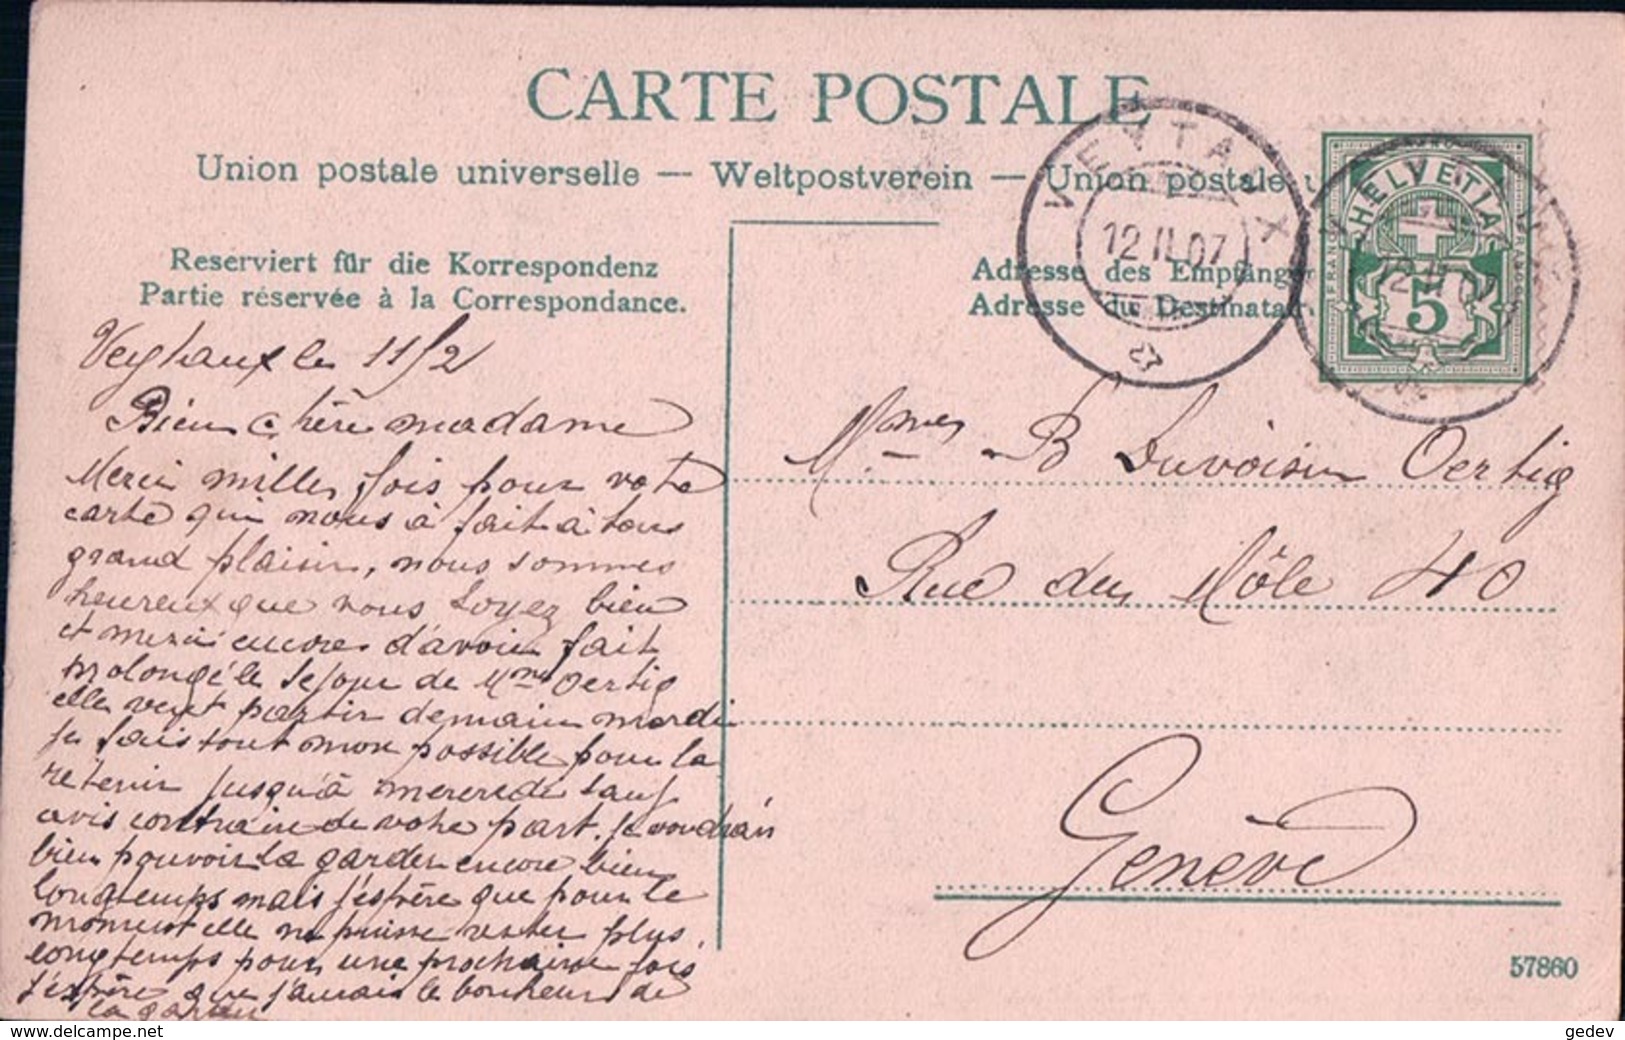 CARTE POSTALE
Union postale universelle — Weltpostverein — Union postale u
Reserviert für die Korrespondenz
Partie réservée à la Correspondance.
Adresse des Empfänger
Adresse du Destinata
VEYTAUX
12 II 07
HELVETIA
FRANCO
FRANCO
5
Veythaux le 11/2
Bien chère madame
Merci milles fois pour votre
carte qui nous à fait à tous
grand plaisir, nous sommes
heureux que vous soyez bien
et merci encore d'avoir fait
prolongé le séjour de Mme Oertig
elle veut partir demain mardi
je fais tout mon possible pour la
retenir jusqu'à mercredi sauf
avis contraire de votre part. je voudrais
bien pouvoir la garder encore bien
longtemps mais j'espère que pour le
moment elle ne puisse rester plus
longtemps pour une prochaine fois
j'espère que j'aurais le bonheur de
la garder
Mmes B Duvoisin Oertig
Rue du Môle 40
Genève
57860
delcampe.net
gedev